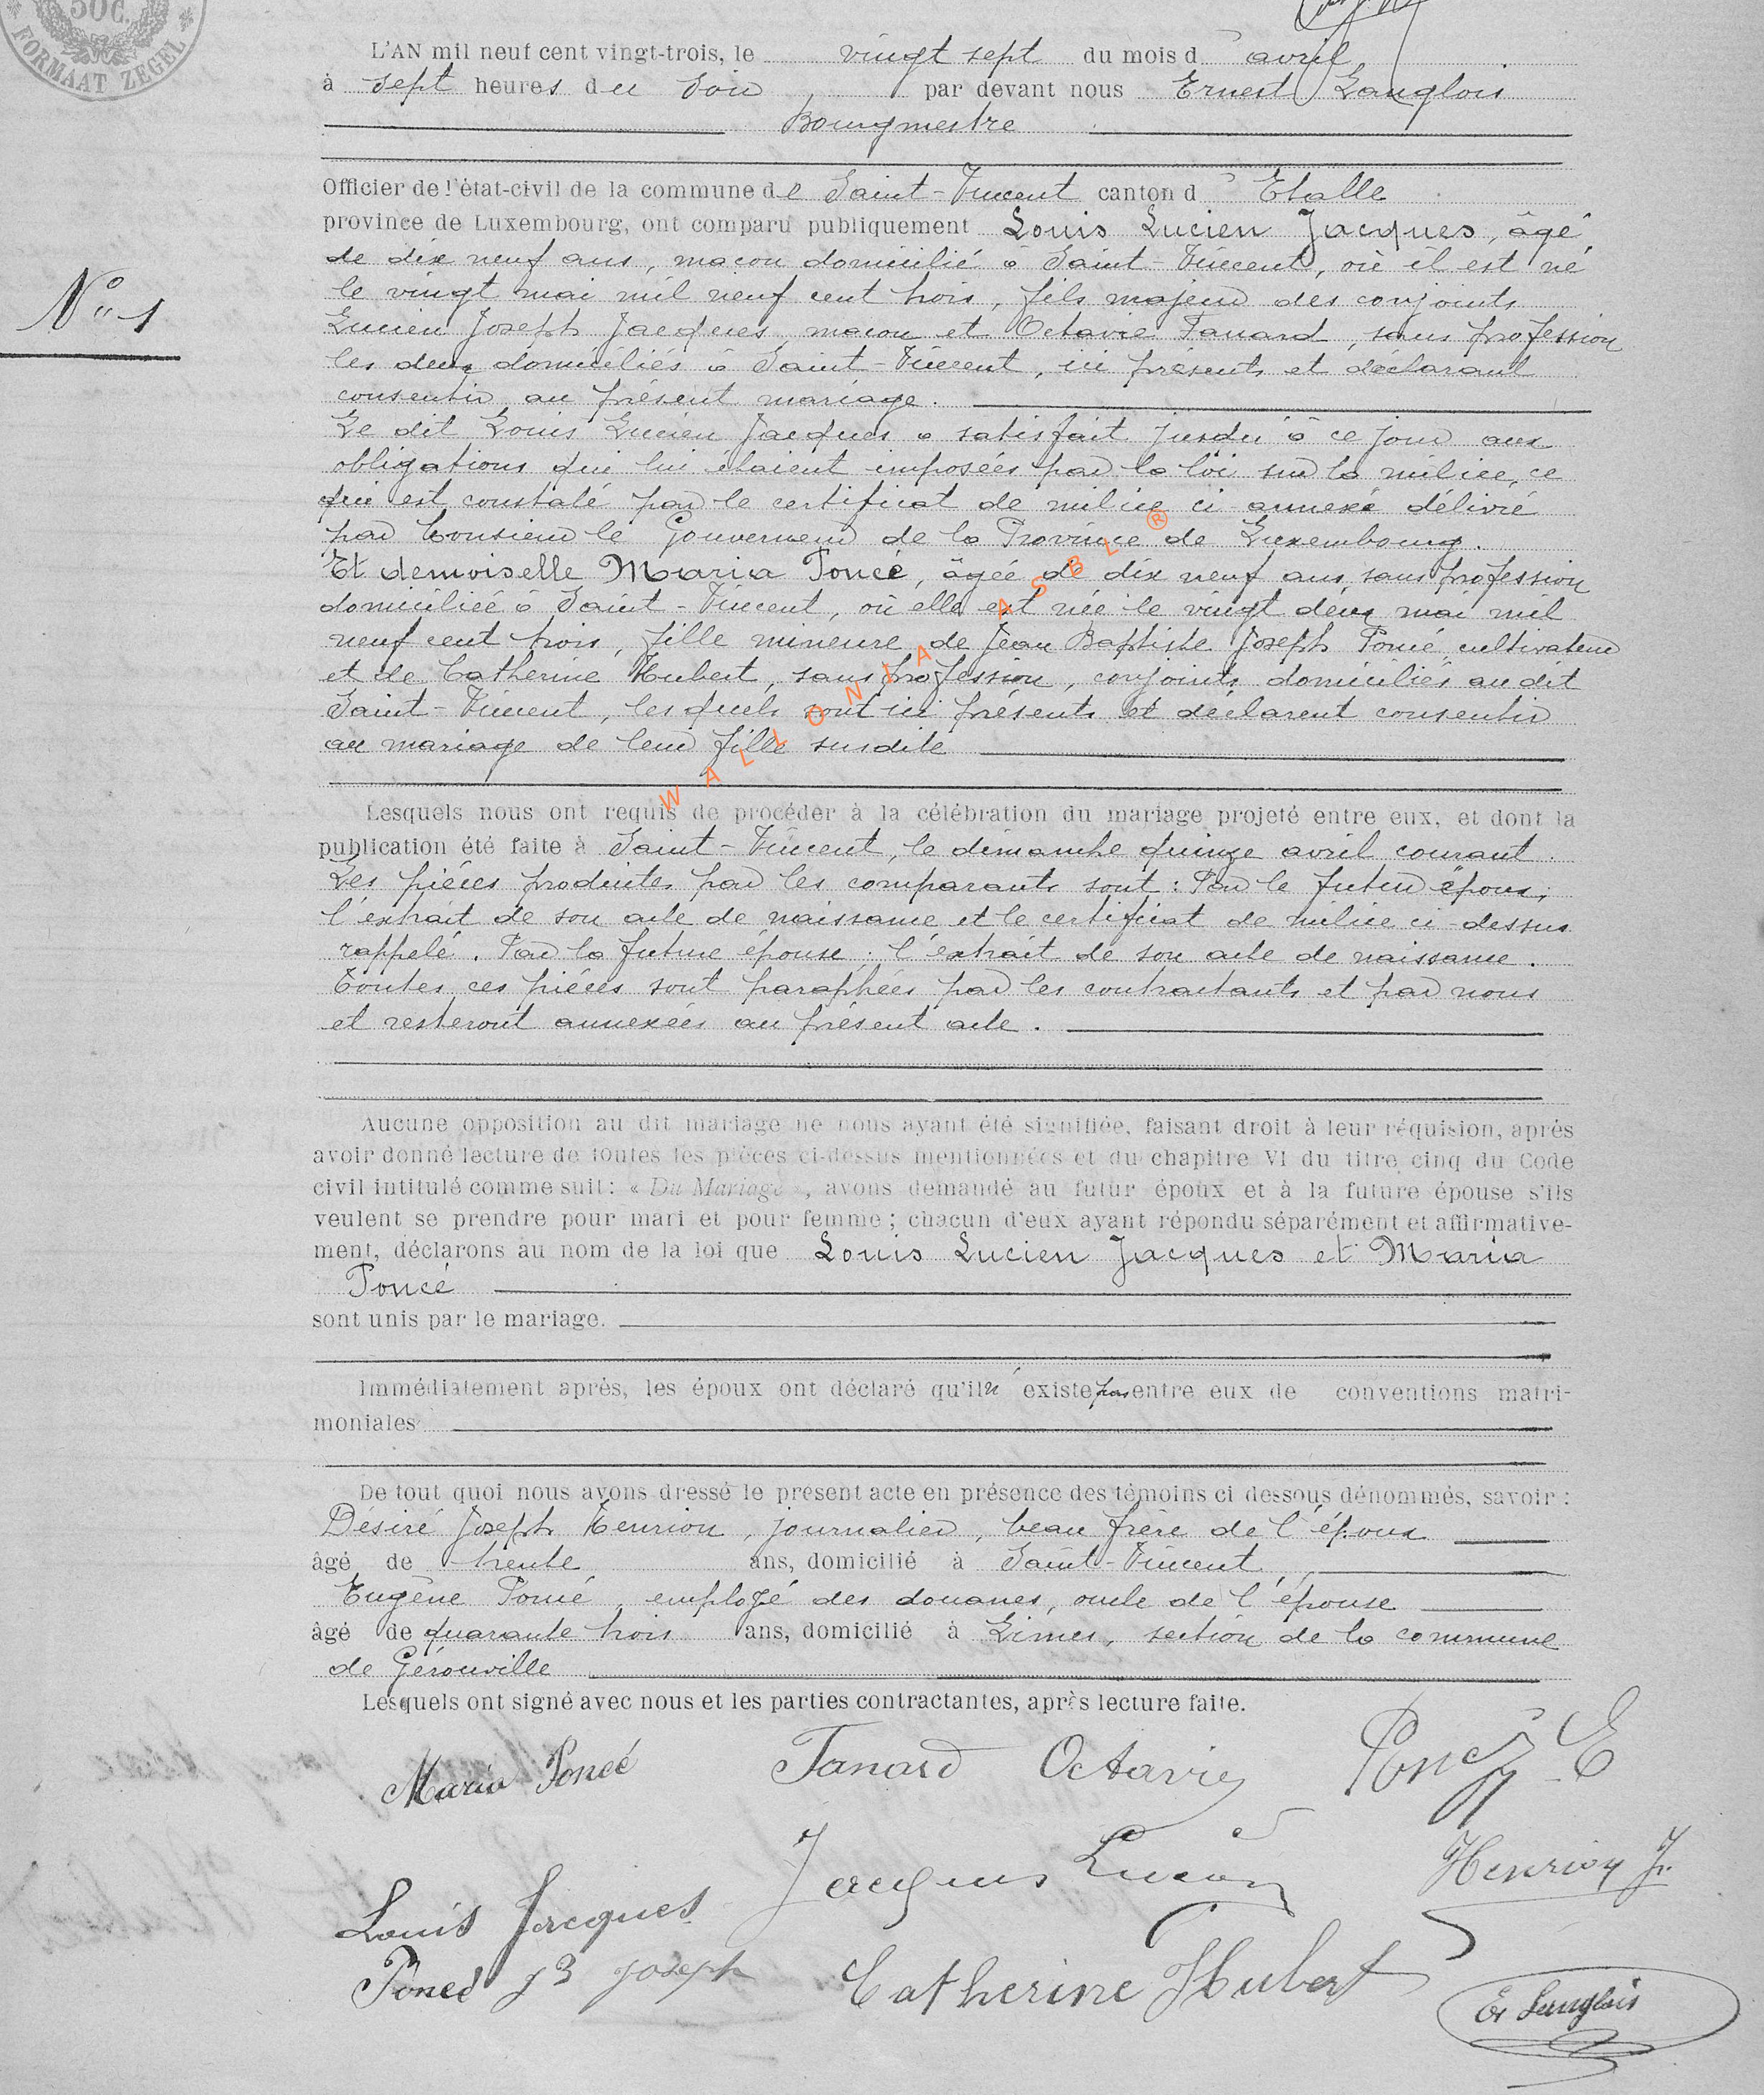 50C.
FORMAAT ZEGEL
L'AN mil neuf cent vingt-trois, le vingt sept du mois d' avril
à sept heures du soir par devant nous Ernest Langlois
Bourgmestre
Officier de l'état-civil de la commune de Saint-Vincent canton d' Etalle
province de Luxembourg, ont comparu publiquement Louis Lucien Jacques, âgé
de dix neuf ans, maçon domicilié à Saint-Vincent, où il est né
N° 1
le vingt mai mil neuf cent trois, fils majeur des conjoints
Lucien Joseph Jacques, maçon et Octavie Tanard, sans profession
les deux domiciliés à Saint-Vincent, ici présents et déclarant
consentir au présent mariage.
Le dit Louis Lucien Jacques a satisfait jusqu'à ce jour aux
obligations qui lui étaient imposées par la loi sur la milice, ce
qui est constaté par le certificat de milice ci annexé délivré
par Monsieur le Gouverneur de la Province de Luxembourg.
Et demoiselle Maria Poncé, âgée de dix neuf ans, sans profession
domiciliée à Saint-Vincent, où elle est née le vingt deux mai mil
neuf cent trois, fille mineure de Jean Baptiste Joseph Poncé cultivateur
et de Catherine Hubert, sans profession, conjoints domiciliés au dit
Saint-Vincent, lesquels sont ici présents et déclarent consentir
au mariage de leur fille susdite
WALLONIA ASBL ®
Lesquels nous ont requis de procéder à la célébration du mariage projeté entre eux, et dont la
publication été faite à Saint-Vincent, le dimanche quinze avril courant.
Les pièces produites par les comparants sont: Par le futur époux;
l'extrait de son acte de naissance et le certificat de milice ci-dessus
rappelé. Par la future épouse: l'extrait de son acte de naissance.
Toutes ces pièces sont paraphées par les contractants et par nous
et resteront annexées au présent acte.
Aucune opposition au dit mariage ne nous ayant été signifiée, faisant droit à leur réquision, après
avoir donné lecture de toutes les pièces ci-dessus mentionnées et du chapitre VI du titre cinq du Code
civil intitulé comme suit: « Du Mariage », avons demandé au futur époux et à la future épouse s'ils
veulent se prendre pour mari et pour femme; chacun d'eux ayant répondu séparément et affirmative-
ment, déclarons au nom de la loi que Louis Lucien Jacques et Maria
Poncé
sont unis par le mariage.
Immédiatement après, les époux ont déclaré qu'il n'existe pas entre eux de conventions matri-
moniales
De tout quoi nous avons dressé le présent acte en présence des témoins ci dessous dénommés, savoir:
Désiré Joseph Henrion, journalier, beau frère de l'époux
âgé de trente ans, domicilié à Saint-Vincent,
Eugène Poncé, employé des douanes, oncle de l'épouse
âgé de quarante trois ans, domicilié à Limes, section de la commune
de Gérouville
Lesquels ont signé avec nous et les parties contractantes, après lecture faite.
Maria Poncé Tanard Octavie Poncé E
Louis Jacques Jacques Lucien Henrion J.
Poncé JB Joseph Catherine Hubert Er Langlois